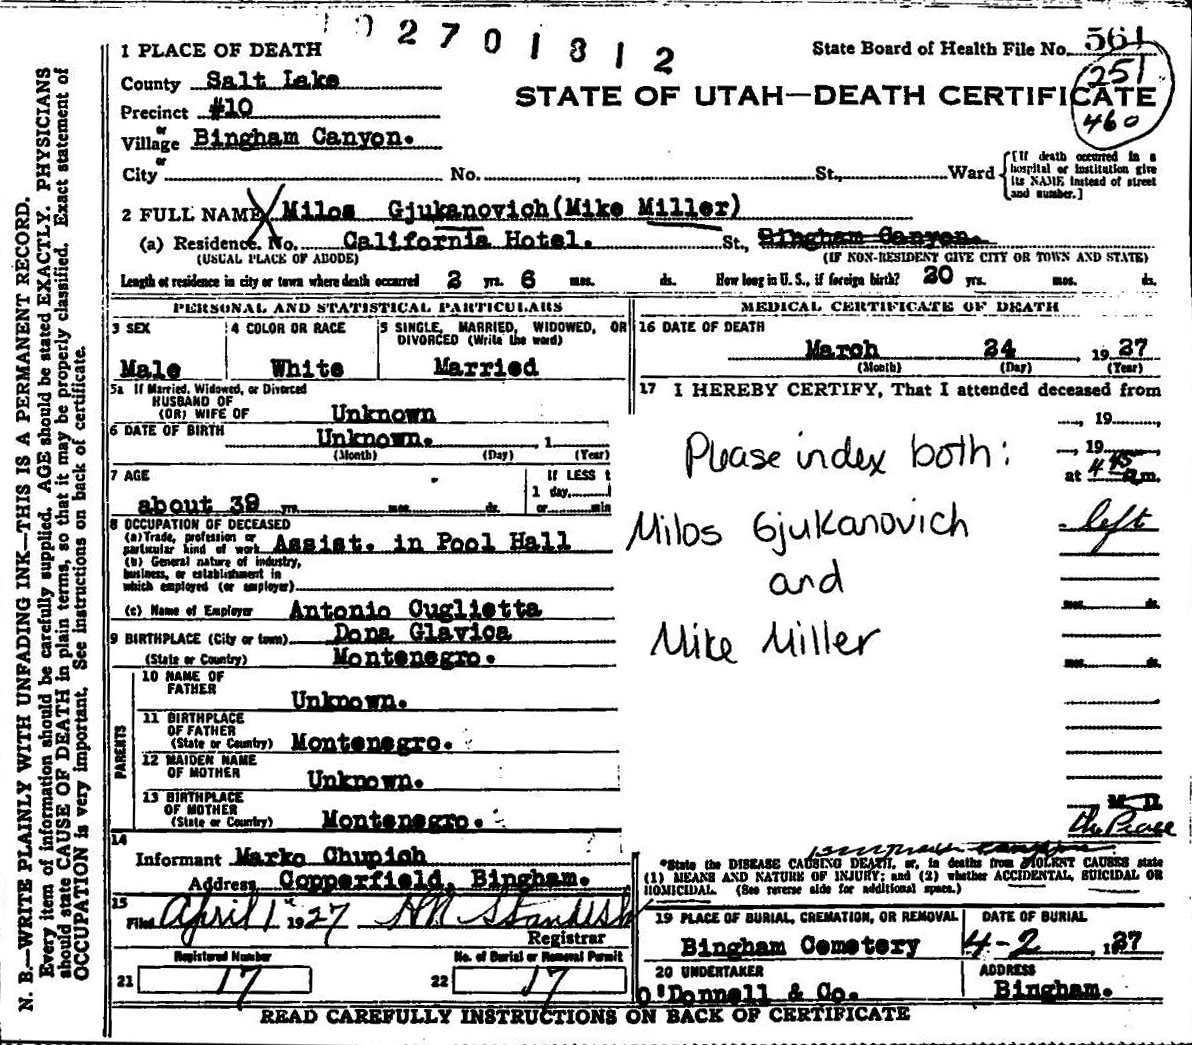 2701812
1 PLACE OF DEATH
State Board of Health File No. 561
County Salt Lake
251
STATE OF UTAH—DEATH CERTIFICATE
Precinct #10
460
or
Village Bingham Canyon.
or
City No. , St., Ward
[If death occurred in a
hospital or institution give
its NAME instead of street
and number.]
2 FULL NAME Milos Gjukanovich (Mike Miller)
(a) Residence. No. California Hotel. St., Bingham Canyon.
(USUAL PLACE OF ABODE) (IF NON-RESIDENT GIVE CITY OR TOWN AND STATE)
Length of residence in city or town where death occurred 2 yrs. 6 mos. ds. How long in U. S., if foreign birth? 20 yrs. mos. ds.
PERSONAL AND STATISTICAL PARTICULARS
3 SEX
Male
4 COLOR OR RACE
White
5 SINGLE, MARRIED, WIDOWED, OR
DIVORCED (Write the word)
Married
5a If Married, Widowed, or Divorced
HUSBAND OF
(OR) WIFE OF Unknown
6 DATE OF BIRTH Unknown. , 1
(Month) (Day) (Year)
7 AGE
about 39 yrs. mos. ds.
If LESS t
1 day,
or min
8 OCCUPATION OF DECEASED
(a) Trade, profession or
particular kind of work Assist. in Pool Hall
(b) General nature of industry,
business, or establishment in
which employed (or employer)
(c) Name of Employer Antonio Cuglietta
9 BIRTHPLACE (City or town) Dona Glavica
(State or Country) Montenegro.
PARENTS
10 NAME OF
FATHER Unknown.
11 BIRTHPLACE
OF FATHER
(State or Country) Montenegro.
12 MAIDEN NAME
OF MOTHER Unknown.
13 BIRTHPLACE
OF MOTHER
(State or Country) Montenegro.
14
Informant Marko Chupich
Address Copperfield, Bingham.
15
Filed April 1 1927 H N Standish
Registrar
Registered Number
21 17
No. of Burial or Removal Permit
22 17
MEDICAL CERTIFICATE OF DEATH
16 DATE OF DEATH
March 24 , 1927
(Month) (Day) (Year)
17 I HEREBY CERTIFY, That I attended deceased from
, 19 ,
, 19
at 4 45 m.
Please index both:
left
Milos Gjukanovich
and
mos. ds.
Mike Miller
mos. ds.
the Peace
*State the DISEASE CAUSING DEATH, or, in deaths from VIOLENT CAUSES state
(1) MEANS AND NATURE OF INJURY; and (2) whether ACCIDENTAL, SUICIDAL OR
HOMICIDAL. (See reverse side for additional space.)
19 PLACE OF BURIAL, CREMATION, OR REMOVAL
Bingham Cemetery
DATE OF BURIAL
4-2 , 1927
20 UNDERTAKER
O'Donnell & Co.
ADDRESS
Bingham.
READ CAREFULLY INSTRUCTIONS ON BACK OF CERTIFICATE
N. B.—WRITE PLAINLY WITH UNFADING INK—THIS IS A PERMANENT RECORD.
Every item of information should be carefully supplied. AGE should be stated EXACTLY. PHYSICIANS
should state CAUSE OF DEATH in plain terms, so that it may be properly classified. Exact statement of
OCCUPATION is very important. See instructions on back of certificate.